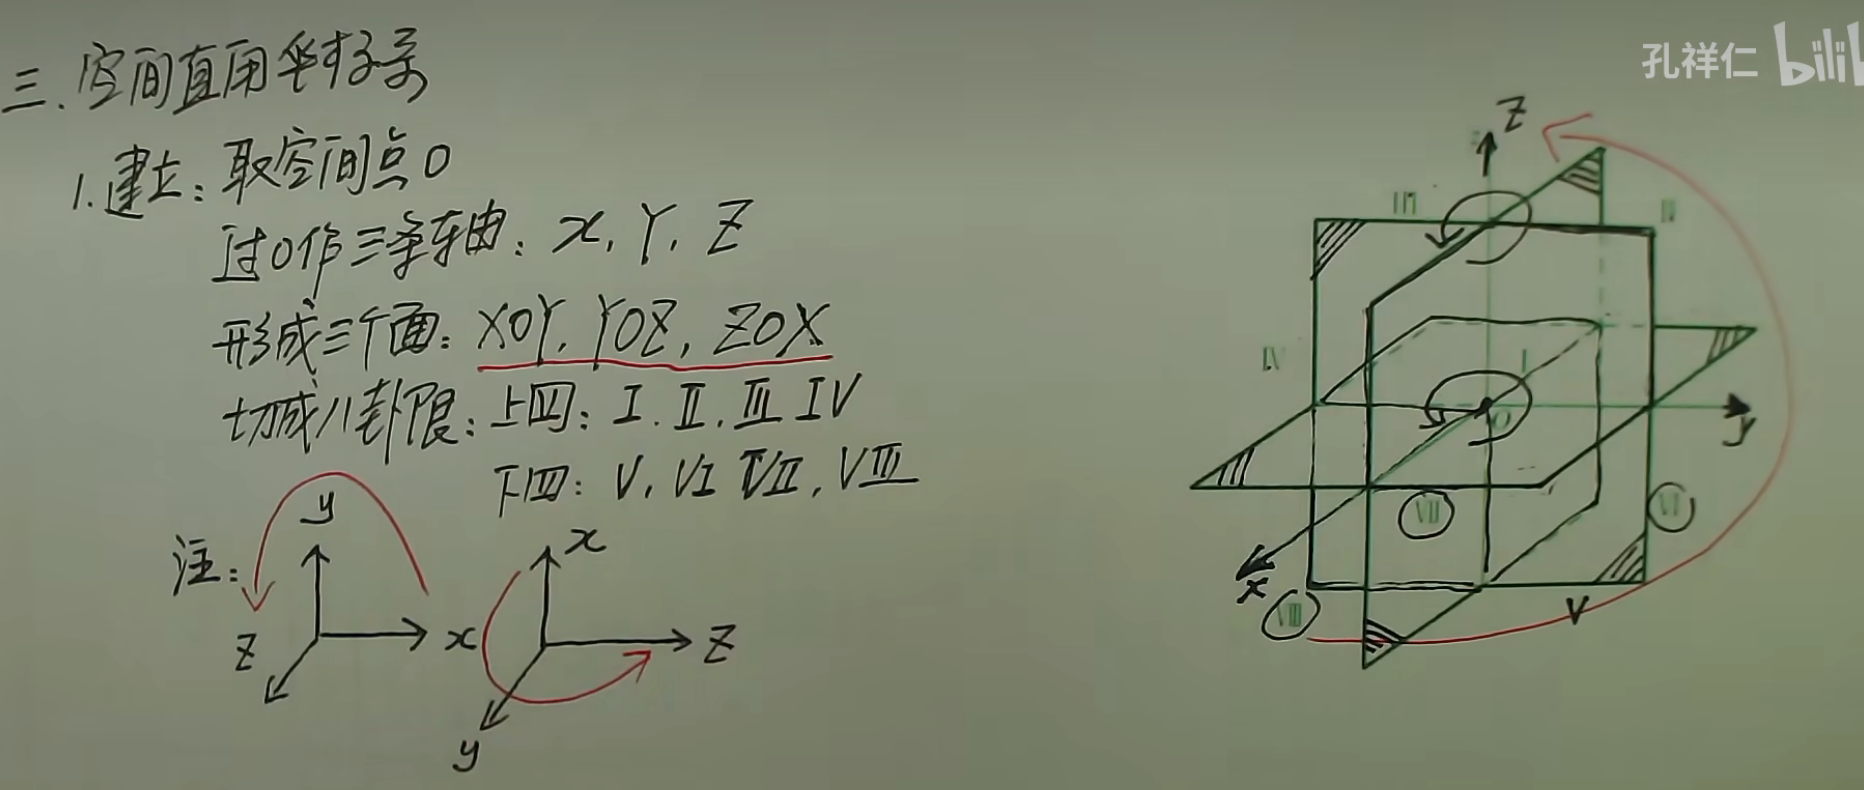 三.空间直角坐标系
1.建立:取空间点O
过O作三条轴:x,Y,Z
形成三个面:XOY,YOZ,ZOX
切成八卦限:上四:I.II.III IV
下四:V,VI VII,VIII
注:
y
Z
x
x
Z
y
孔祥仁 bilib
Z
III
II
IV
I
O
y
VII
VI
x
VIII
V